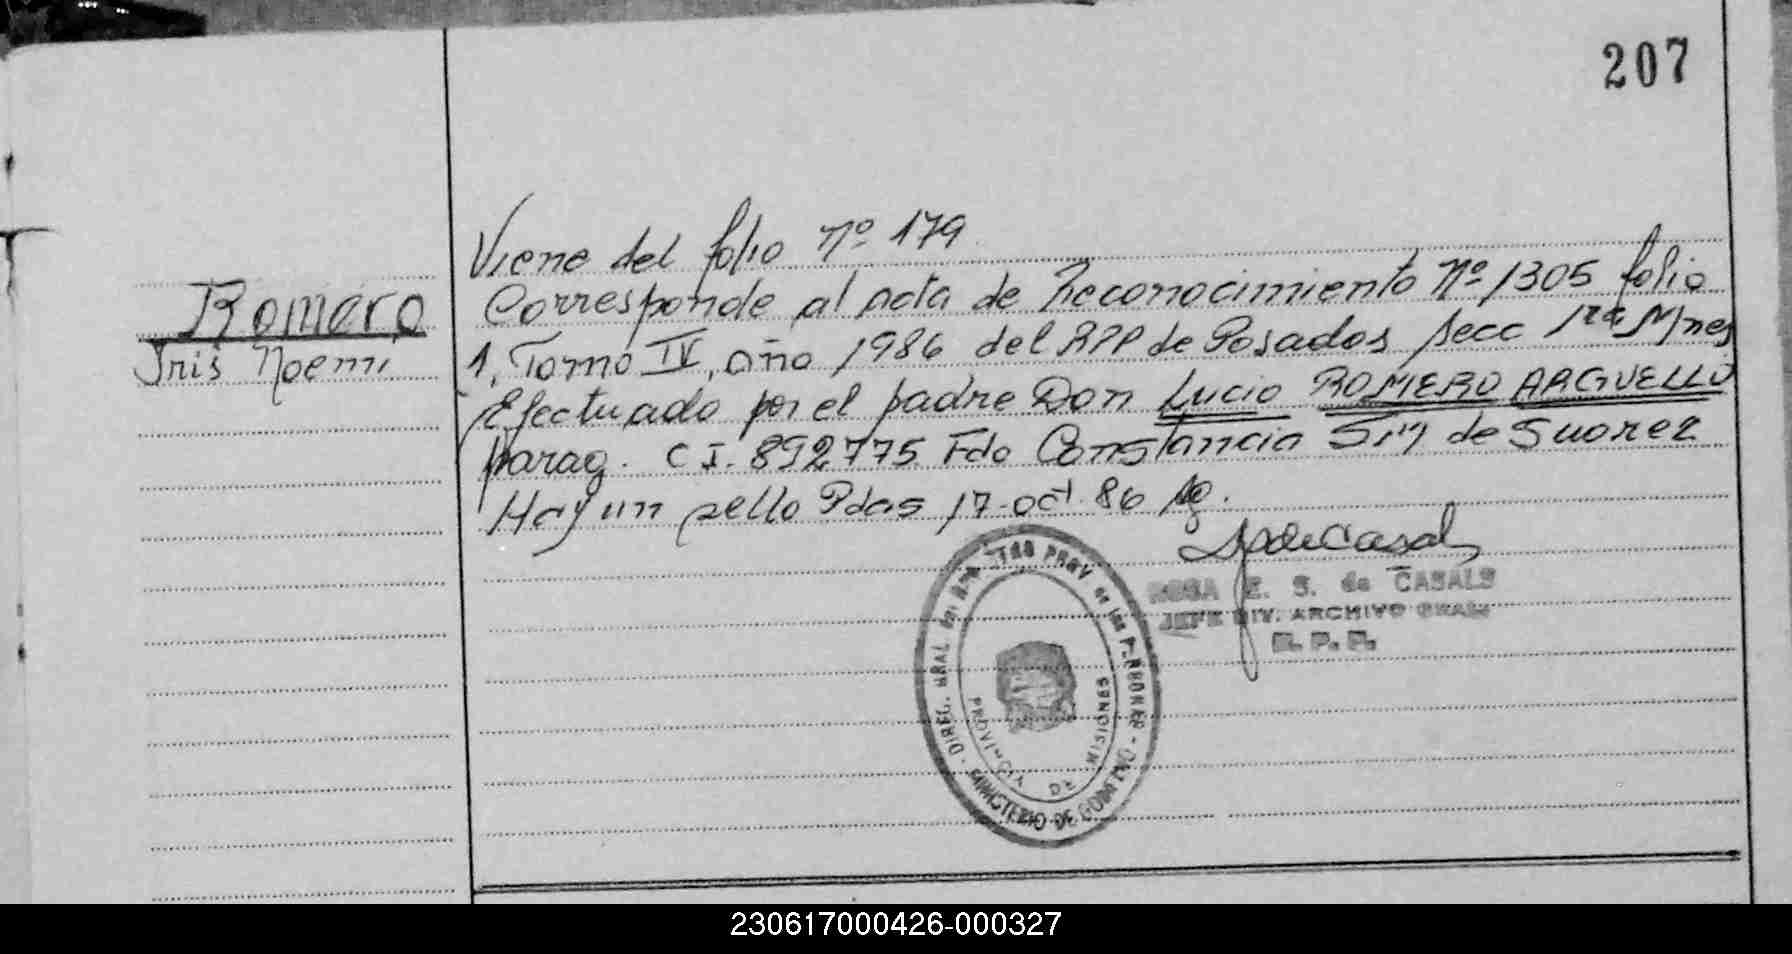 207
Viene del folio Nº 179
Romero
Iris Noemi
Corresponde al acta de Reconocimiento Nº 1305 folio
1, Tomo IV, año 1986 del RPP de Posadas secc 1ra Mnes
Efectuado por el padre Don Lucio ROMERO ARGUELLO
parag. C I. 892775 Fdo Constancia de Suarez
Hay un sello Pdas 17-oct 86
ROSA E. S. de CASALS
JEFE DIV. ARCHIVO GRAL
R. P. P.
DIREC. GRAL. del PROV de las PERSONAS
MINISTERIO DE GOBIERNO
PROVINCIA DE MISIONES
230617000426-000327